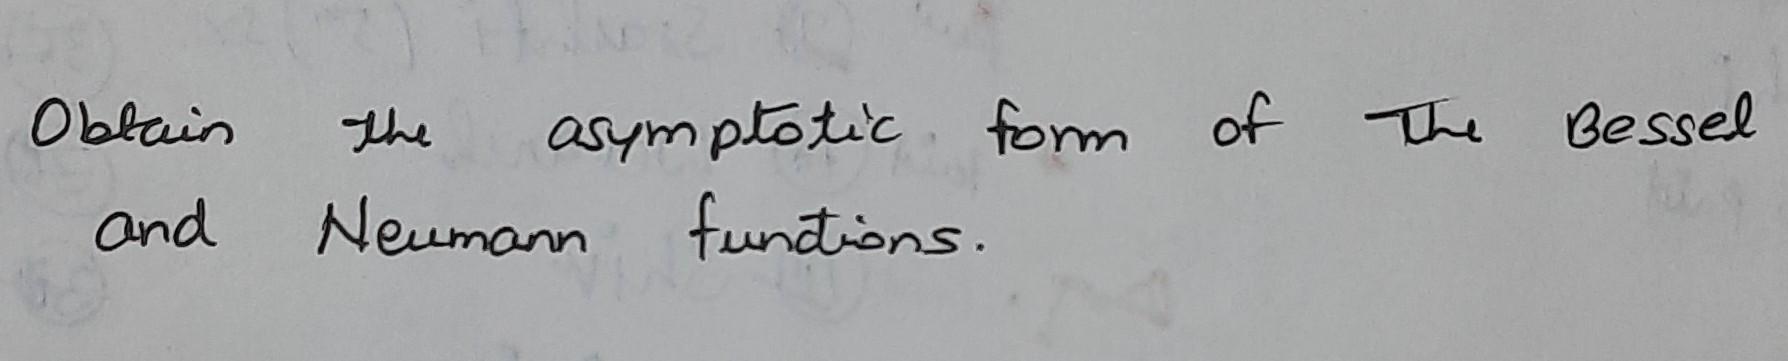 Obtain the asymptotic form of The Bessel
and Neumann functions.